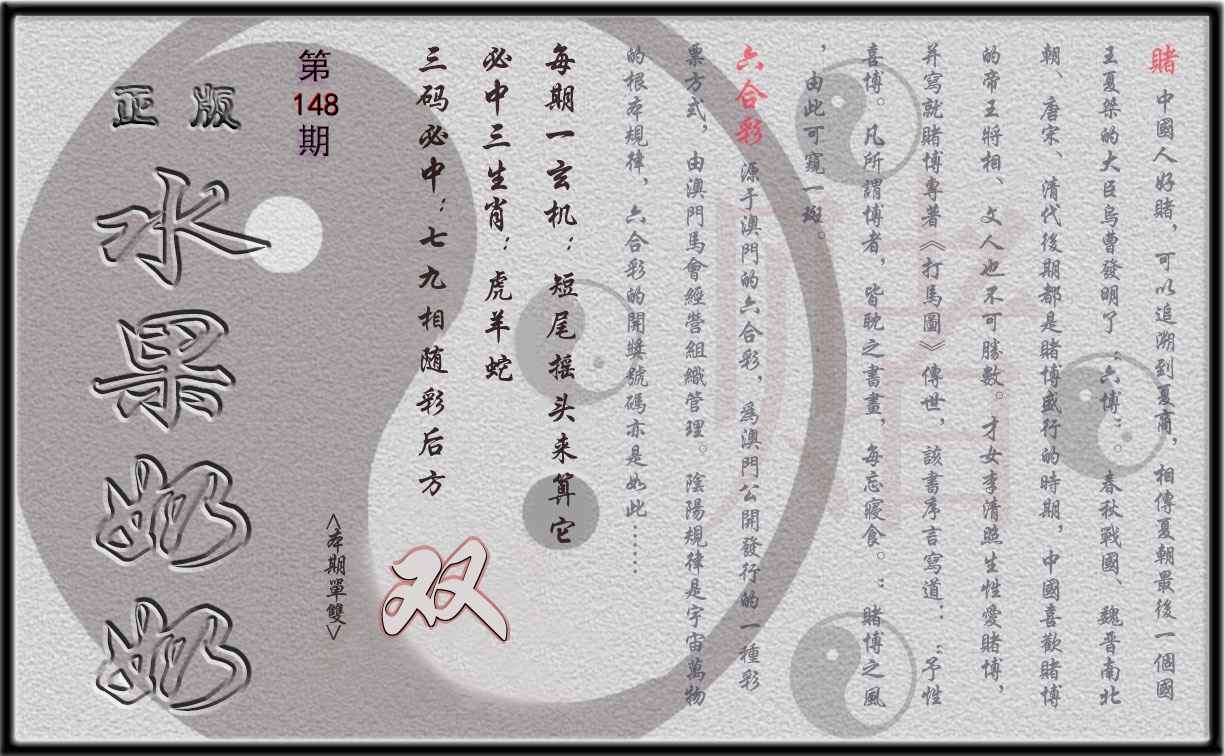 賭 中國人好賭，可以追溯到夏商，相傳夏朝最後一個國
王夏桀的大臣烏曹發明了“六博”。春秋戰國、魏晋南北
朝、唐宋、清代後期都是賭博盛行的時期，中國喜歡賭博
的帝王將相、文人也不可勝數。才女李清照生性愛賭博，
并寫就賭博專著《打馬圖》傳世，該書序言寫道：“予性
喜博。凡所謂博者，皆耽之書晝，每忘寢食。：賭博之風
，由此可窺一斑。
六合彩 源于澳門的六合彩，爲澳門公開發行的一種彩
票方式，由澳門馬會經營組織管理。陰陽規律是宇宙萬物
的根本規律，六合彩的開獎號碼亦是如此······
每期一玄机：短尾摇头来算它
必中三生肖：虎羊蛇
三码必中：七九相随彩后方
双
<本期單雙>
第
148
期
正版
水果奶奶
賭